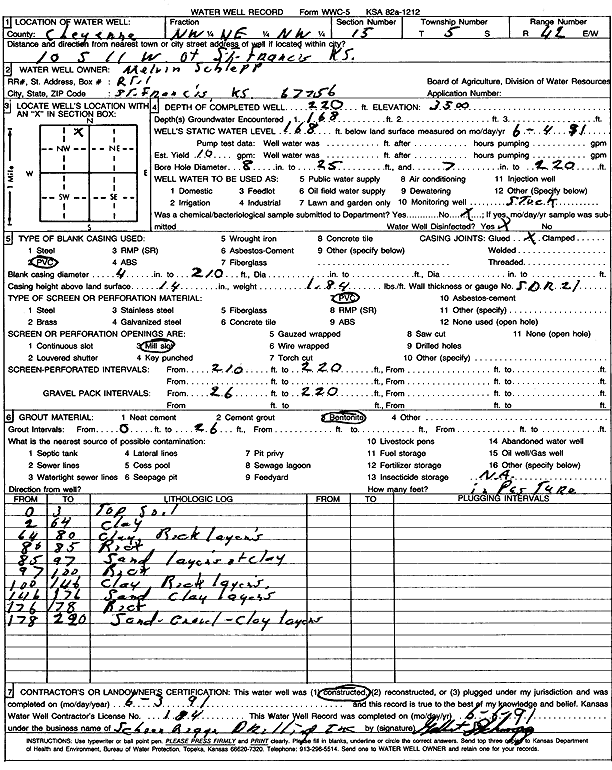 WATER WELL RECORD Form WWC-5 KSA 82a-1212
1 LOCATION OF WATER WELL: Fraction Section Number Township Number Range Number
County: Cheyenne NW ¼ NE ¼ NW ¼ 15 T 5 S R 42 E/W
Distance and direction from nearest town or city street address of well if located within city?
10 S 11 W of St. Francis KS.
2 WATER WELL OWNER: Melvin Schlepp
RR#, St. Address, Box #: RT-1 Board of Agriculture, Division of Water Resources
City, State, ZIP Code : ST. Francis, KS. 67756 Application Number:
3 LOCATE WELL'S LOCATION WITH AN "X" IN SECTION BOX: 4 DEPTH OF COMPLETED WELL 220 ft. ELEVATION: 3500
Depth(s) Groundwater Encountered 1 168 ft. 2. ft. 3. ft.
N X NW NE W E SW SE S 1 Mile
WELL'S STATIC WATER LEVEL 168 ft. below land surface measured on mo/day/yr 6-4-91
Pump test data: Well water was ft. after hours pumping gpm
Est. Yield 10 gpm: Well water was ft. after hours pumping gpm
Bore Hole Diameter 8 in. to 25 ft., and 7 in. to 220 ft.
WELL WATER TO BE USED AS: 5 Public water supply 8 Air conditioning 11 Injection well
1 Domestic 3 Feedlot 6 Oil field water supply 9 Dewatering 12 Other (Specify below)
2 Irrigation 4 Industrial 7 Lawn and garden only 10 Monitoring well STOCK
Was a chemical/bacteriological sample submitted to Department? Yes No X ; If yes, mo/day/yr sample was submitted Water Well Disinfected? Yes X No
5 TYPE OF BLANK CASING USED: 5 Wrought iron 8 Concrete tile CASING JOINTS: Glued X Clamped
1 Steel 3 RMP (SR) 6 Asbestos-Cement 9 Other (specify below) Welded
2 PVC 4 ABS 7 Fiberglass Threaded
Blank casing diameter 4 in. to 210 ft., Dia in. to ft., Dia in. to ft.
Casing height above land surface 14 in., weight 1.84 lbs./ft. Wall thickness or gauge No. SDR 21
TYPE OF SCREEN OR PERFORATION MATERIAL: 7 PVC 10 Asbestos-cement
1 Steel 3 Stainless steel 5 Fiberglass 8 RMP (SR) 11 Other (specify)
2 Brass 4 Galvanized steel 6 Concrete tile 9 ABS 12 None used (open hole)
SCREEN OR PERFORATION OPENINGS ARE: 5 Gauzed wrapped 8 Saw cut 11 None (open hole)
1 Continuous slot 3 Mill slot 6 Wire wrapped 9 Drilled holes
2 Louvered shutter 4 Key punched 7 Torch cut 10 Other (specify)
SCREEN-PERFORATED INTERVALS: From 210 ft. to 220 ft., From ft. to ft.
From ft. to ft., From ft. to ft.
GRAVEL PACK INTERVALS: From 26 ft. to 220 ft., From ft. to ft.
From ft. to ft., From ft. to ft.
6 GROUT MATERIAL: 1 Neat cement 2 Cement grout 3 Bentonite 4 Other
Grout Intervals: From 0 ft. to 26 ft., From ft. to ft., From ft. to ft.
What is the nearest source of possible contamination: 10 Livestock pens 14 Abandoned water well
1 Septic tank 4 Lateral lines 7 Pit privy 11 Fuel storage 15 Oil well/Gas well
2 Sewer lines 5 Cess pool 8 Sewage lagoon 12 Fertilizer storage 16 Other (specify below)
3 Watertight sewer lines 6 Seepage pit 9 Feedyard 13 Insecticide storage N.A.
Direction from well? How many feet? in Pasture
FROM TO LITHOLOGIC LOG FROM TO PLUGGING INTERVALS
0 3 Top Soil
2 64 Clay
64 80 Clay, Rock layers
80 85 Rock
85 97 Sand layers of clay
97 100 Rock
100 146 Clay, Rock layers.
146 176 Sand Clay layers
176 178 Rock
178 220 Sand-Gravel-Clay layers
7 CONTRACTOR'S OR LANDOWNER'S CERTIFICATION: This water well was (1) constructed, (2) reconstructed, or (3) plugged under my jurisdiction and was
completed on (mo/day/year) 6-3-91 and this record is true to the best of my knowledge and belief. Kansas
Water Well Contractor's License No. 184 This Water Well Record was completed on (mo/day/yr) 6-5-91
under the business name of Drilling Inc by (signature)
INSTRUCTIONS: Use typewriter or ball point pen. PLEASE PRESS FIRMLY and PRINT clearly. Please fill in blanks, underline or circle the correct answers. Send top three copies to Kansas Department
of Health and Environment, Bureau of Water Protection, Topeka, Kansas 66620-7320. Telephone: 913-296-5514. Send one to WATER WELL OWNER and retain one for your records.